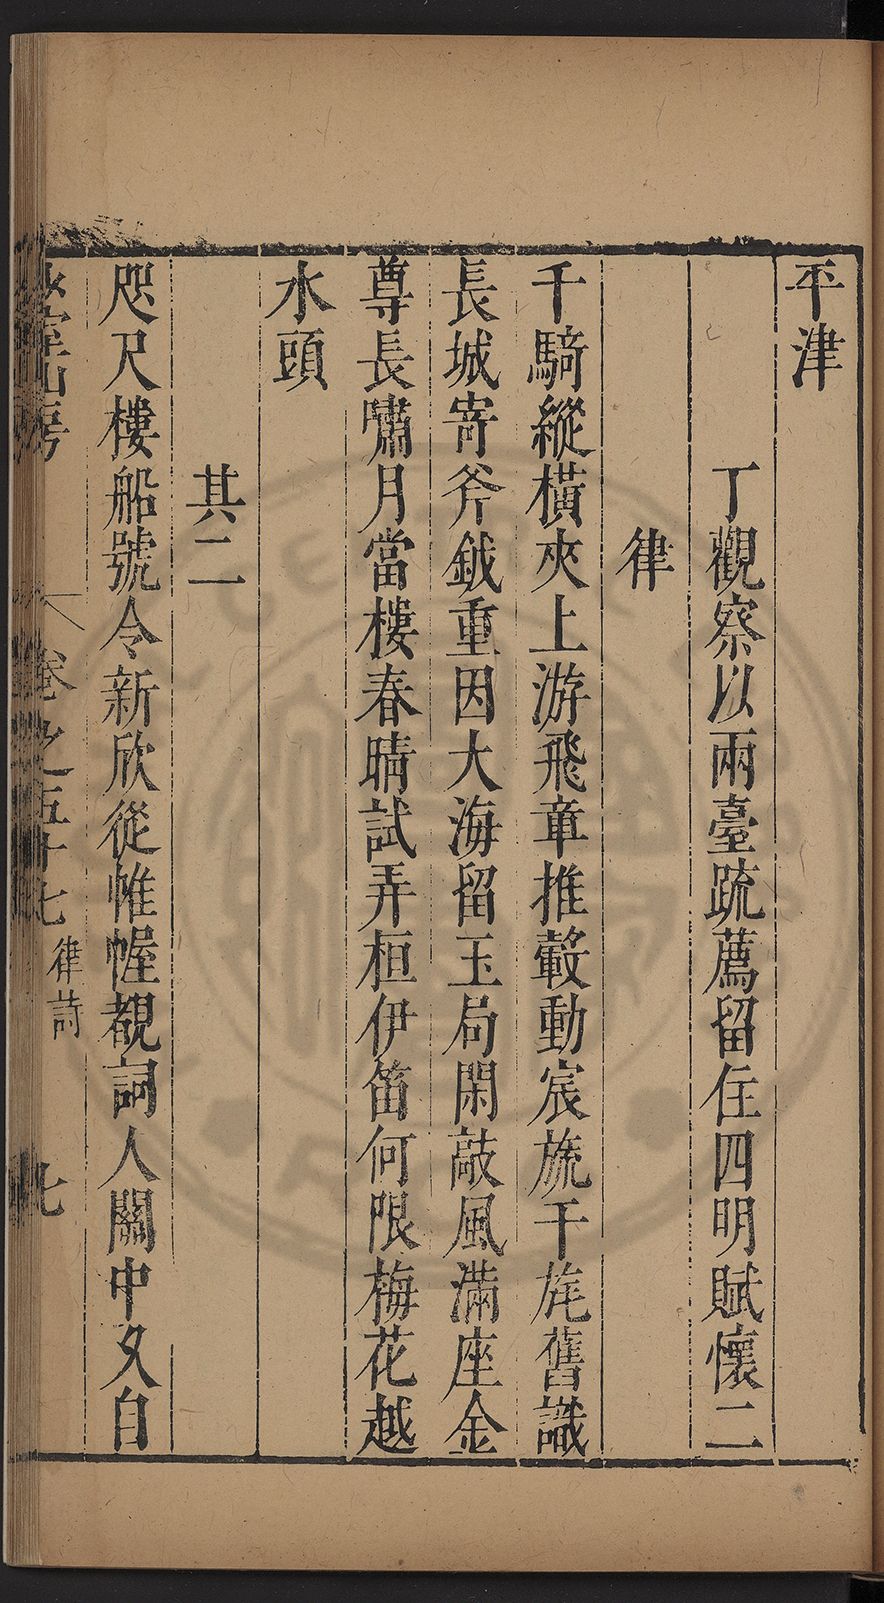 平津
丁觀察以兩臺疏薦留住四明賦懷二
律
千騎縱橫夾上游飛章推轂動宸旒干旄舊識
長城寄斧鉞重因大海留玉局閑敲風滿座金
尊長嘯月當樓春晴試弄桓伊笛何限梅花越
水頭
其二
咫尺樓船號令新欣從帷幄覩詞人關中又自
山房
卷之五十七
律詩
七